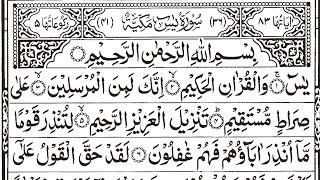 اٰیَاتُهَا ۸۳ (۳۶) سُوْرَةُ یٰسٓ مَكِّیَّةٌ (۴۱) رُكُوْعَاتُهَا ۵
بِسْمِ اللّٰهِ الرَّحْمٰنِ الرَّحِیْمِ
یٰسٓ ۚ۝ وَالْقُرْاٰنِ الْحَكِیْمِ ۙ۝ اِنَّكَ لَمِنَ الْمُرْسَلِیْنَ ۙ۝ عَلٰی
صِرَاطٍ مُّسْتَقِیْمٍ ؕ۝ تَنْزِیْلَ الْعَزِیْزِ الرَّحِیْمِ ۙ۝ لِتُنْذِرَ قَوْمًا
مَّاۤ اُنْذِرَ اٰبَآؤُهُمْ فَهُمْ غٰفِلُوْنَ ۝ لَقَدْ حَقَّ الْقَوْلُ عَلٰۤی